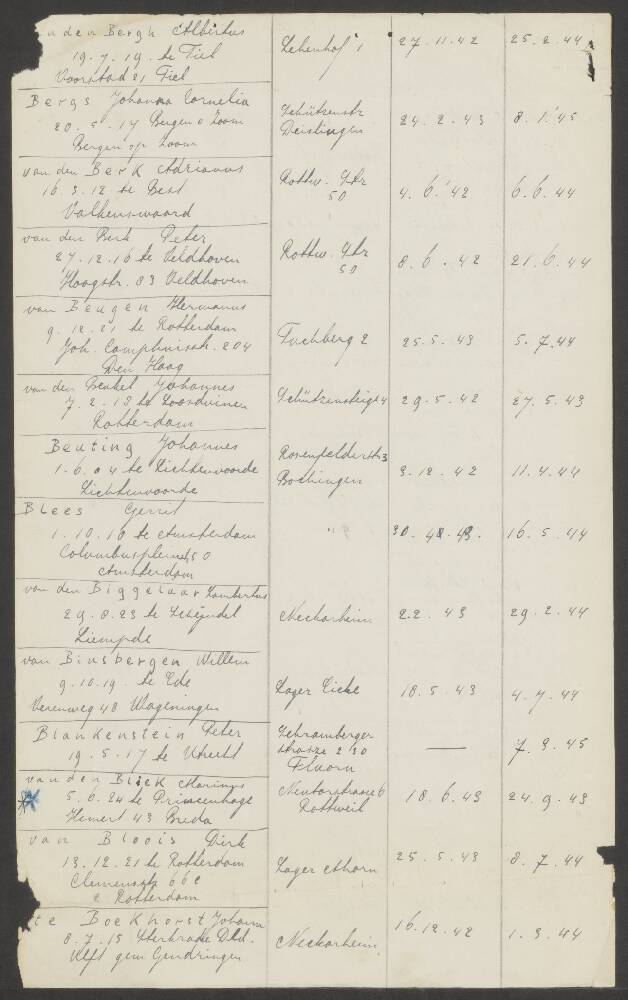 van den Bergh Albertus Lehenhof 1 27.11.42 25.2.44
19.7.19. te Tiel
Voorstad 21 Tiel
Bergs Johanna Cornelia Schützenstr 24.2.43 8.1.45
20.5.14 Bergen o Zoom Deislingen
Bergen op Zoom
van den Berk Adrianus Rottw. Str 4.6.42 6.6.44
16.3.12 te Best 50
Valkenswaard
van den Berk Peter Rottw. Str 8.6.42 21.6.44
27.12.16 te Veldhoven 50
Hoogstr. 83 Veldhoven
van Beugen Hermanus
9.12.21 te Rotterdam Tuchberg 2 25.5.43 5.7.44
Joh. Camphuisstr. 204
Den Haag
van den Beukel Johannes Schützensteig 4 29.5.42 27.5.43
7.2.13 te Loosduinen
Rotterdam
Beuting Johannes Rosenfelderstr 3
1.6.04 te Lichtenvoorde Bochingen 3.12.42 11.4.44
Lichtenvoorde
Blees Gerrit
1.10.16 te Amsterdam " 16.5.44
Columbusplein 50
Amsterdam
van den Biggelaar Lambertus
29.8.23 te Schijndel Neckarheim 2.2.43 29.2.44
Liempde
van Binsbergen Willem
9.10.19. te Ede Lager Eiche 18.5.43 4.7.44
Veerweg 48 Wageningen
Blankenstein Peter Schramberger
19.5.17 te Utrecht strasze 2/30 — 7.9.45
Fluorn
van den Blick Marinus Neutorstrasse 6
5.6.24 te Princenhage Rottweil 18.6.43 24.9.43
Heuvel 43 Breda
van Bloois Dirk
13.12.21 te Rotterdam Lager Ahorn 25.5.43 8.7.44
Clemensstr 66c
Rotterdam
te Boekhorst Johann
8.7.15 Sterkrade Dld. Neckarheim 16.12.42 1.3.44
Ulft gem Gendringen